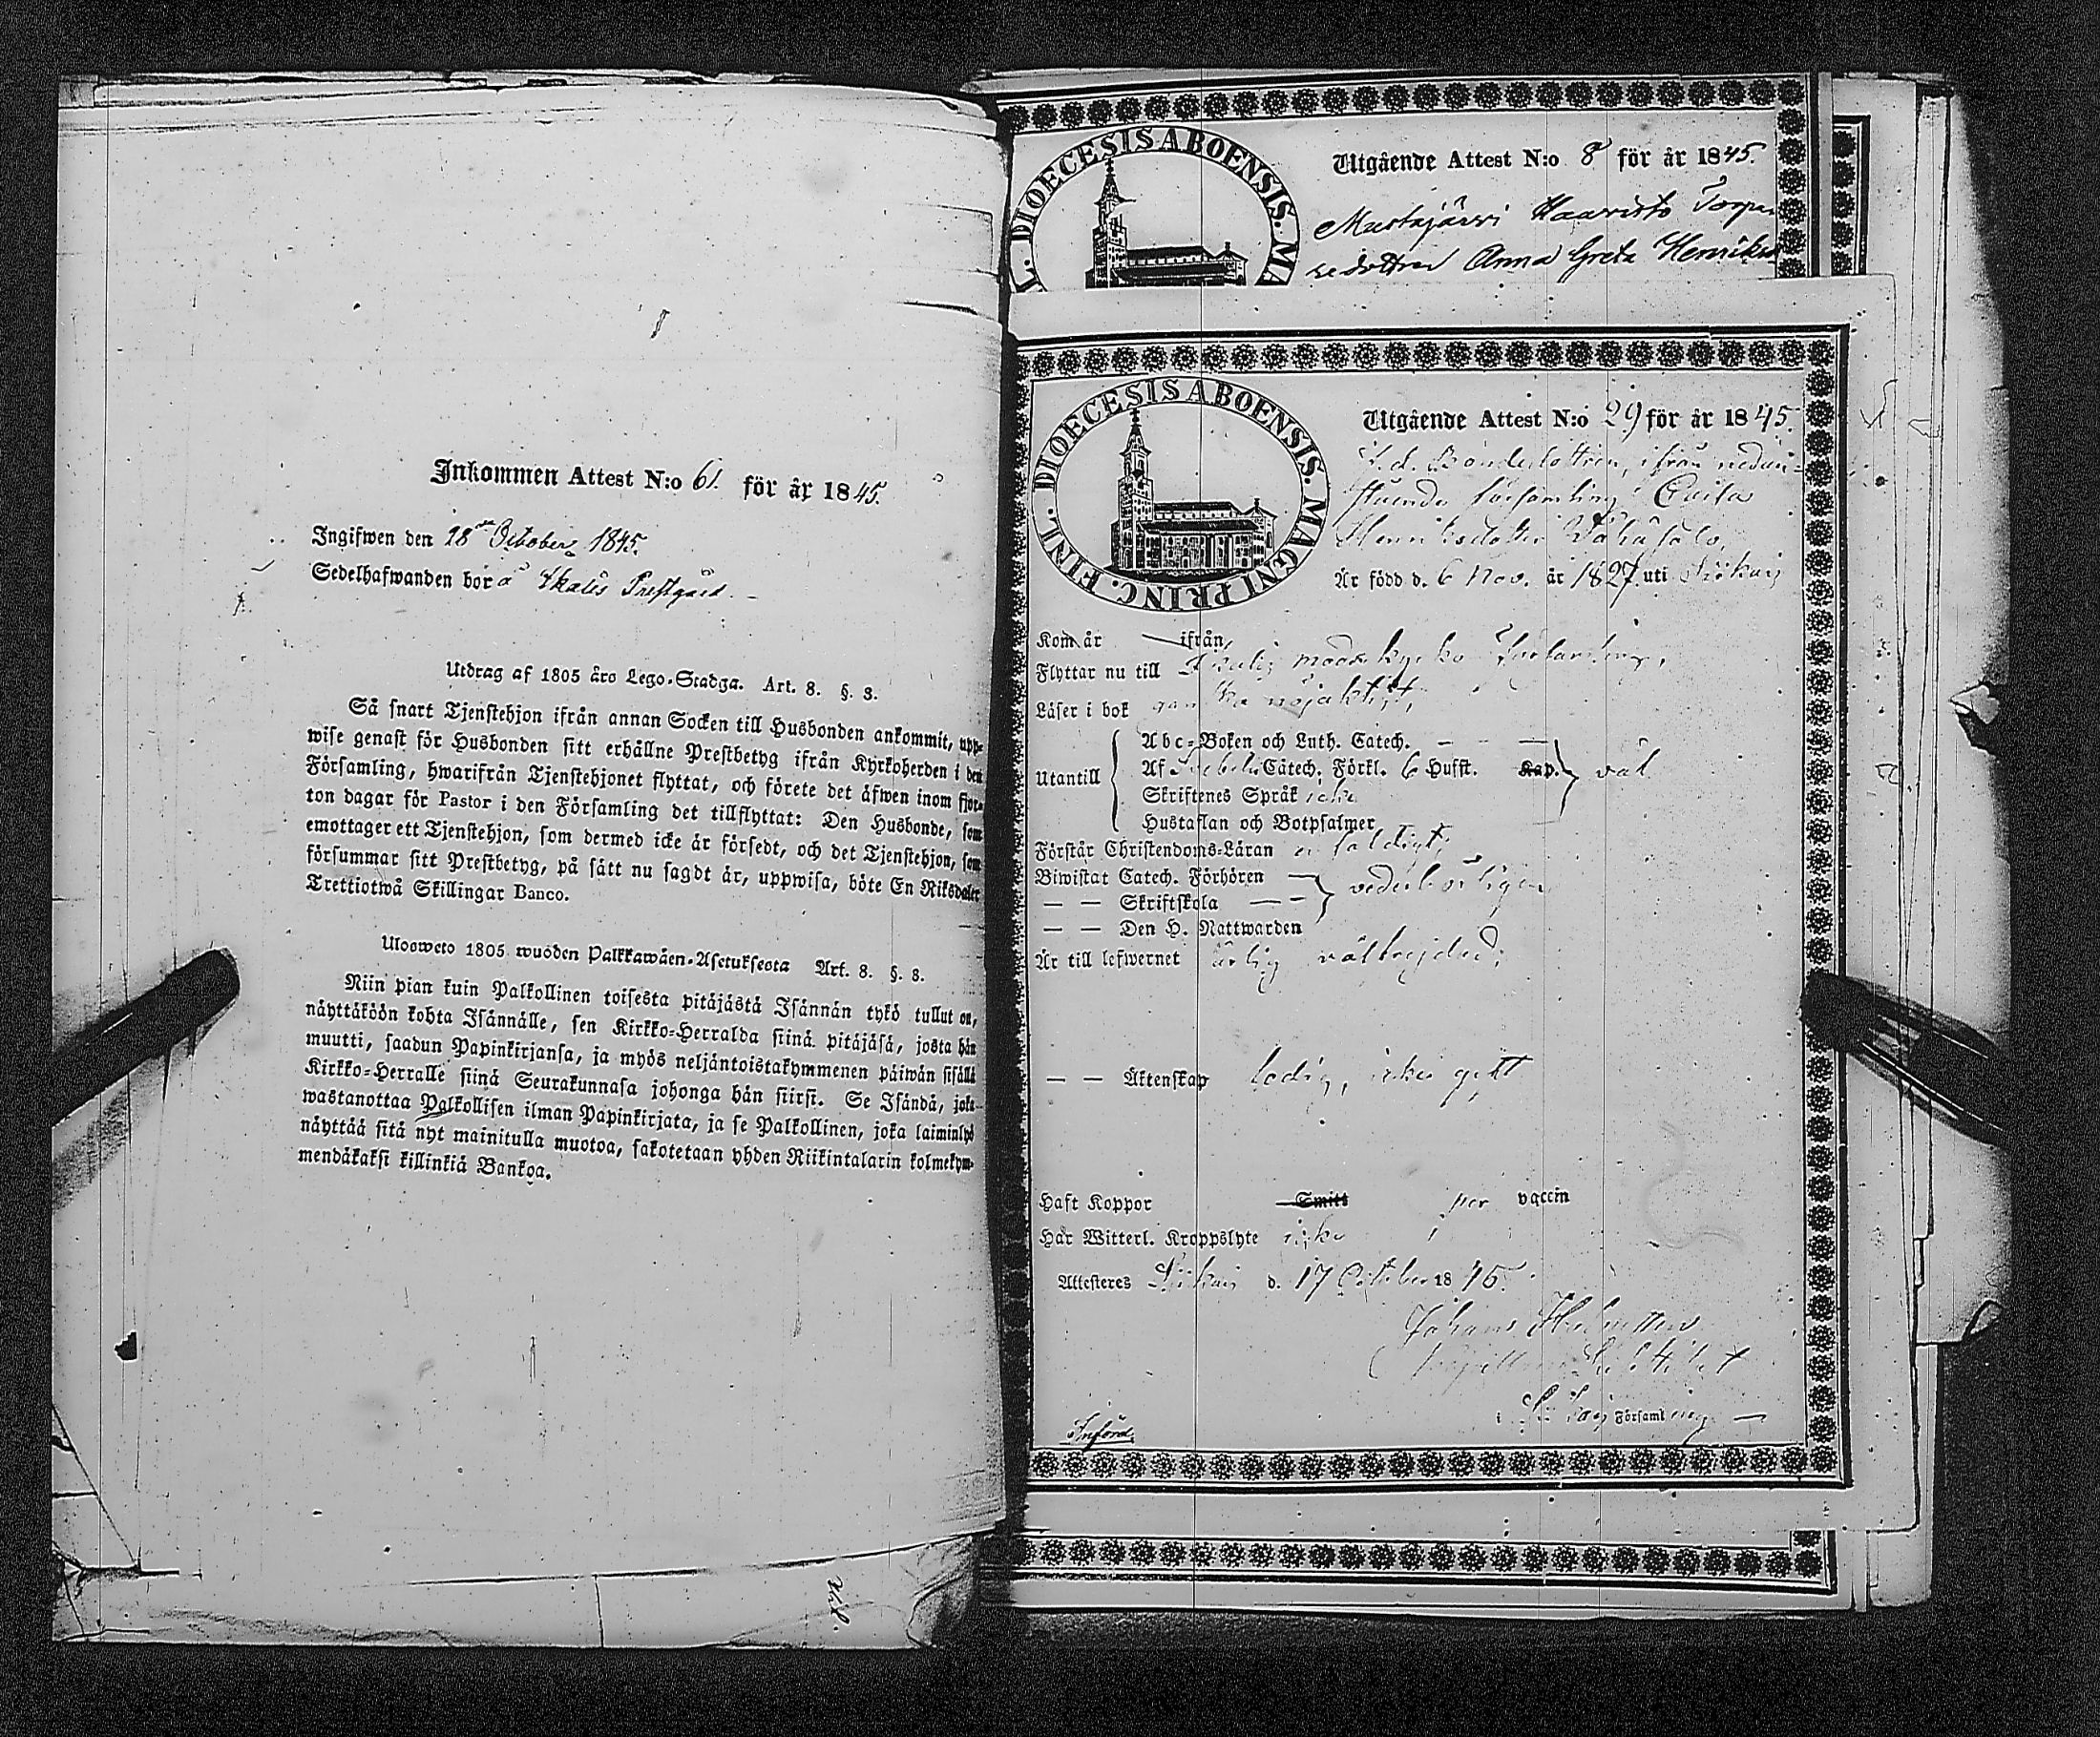 Inkommen Attest N:o 61. för år 1845.
Ingifwen den 28 October 1845.
Sedelhafwanden bor å Ikalis Prestgård.
Utdrag af 1805 års Lego-Stadga. Art. 8. §. 3.
Så snart Tjenstehjon ifrån annan Socken till Husbonden ankommit, upp-
wise genast för Husbonden sitt erhållne Prestbetyg ifrån Kyrkoherden i den
Församling, hwarifrån Tjenstehjonet flyttat, och förete det äfwen inom fjor-
ton dagar för Pastor i den Församling det tillflyttat: Den Husbonde, som
emottager ett Tjenstehjon, som dermed icke är försedt, och det Tjenstehjon, som
försummar sitt Prestbetyg, på sätt nu sagdt är, uppwisa, böte En Riksdaler
Trettiotwå Skillingar Banco.
Ulosweto 1805 wuoden Palkkawäen-Asetuksesta Art. 8. §. 8.
Niin pian kuin Palkollinen toisesta pitäjästä Isännän tykö tullut on,
näyttäköön kohta Isännälle, sen Kirkko-Herralda siinä pitäjäsä, josta hän
muutti, saadun Papinkirjansa, ja myös neljäntoistakymmenen päiwän sisällä
Kirkko-Herralle siinä Seurakunnasa johonga hän siirsi. Se Isändä, joka
wastanottaa Palkollisen ilman Papinkirjata, ja se Palkollinen, joka laiminlyö
näyttää sitä nyt mainitulla muotoa, sakotetaan yhden Riikintalarin kolmekym-
mendäkaksi killinkiä Bankoa.
DIOECESIS ABOENSIS. MA
Utgående Attest N:o 8 för år 1845.
Mustajärvi Haavisto Torpa-
redottren Anna Greta Henriks
DIOECESIS ABOENSIS. MAGNI PRINC. FINL.
Utgående Attest N:o 29 för år 1845.
Bondedottren, ifrån nedan-
stående församling Caisa
Henriksdotter
Är född d. 6 Nov. år 1827 uti
Kom år — ifrån
Flyttar nu till moderkyrko församling,
Läser i bok ganska nöjaktigt,
Utantill
Abc-Boken och Luth. Catech. — — —
Af Svebelii Catech. Förkl. 6 Hufst. Kap. väl
Skriftenes Språk icke
Hustaflan och Botpsalmer
Förstår Christendoms-Läran enfaldigt.
Biwistat Catech. Förhören — vederbörligen
— — Skriftskola — —
— — Den H. Nattwarden
Är till lefwernet ärlig välfrejdad;
— — Äktenskap ledig, icke gift
Haft Koppor Smitt per vaccin
Har Witterl. Kroppslyte icke
Attesteres d. 17 October 1845.
Johans
i Församling —
Införd.